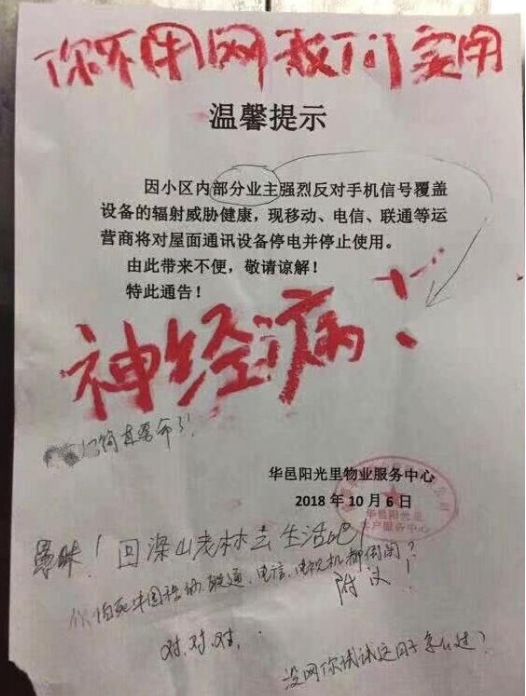 你不用网我们实用
温馨提示
因小区内部分业主强烈反对手机信号覆盖
设备的辐射威胁健康，现移动、电信、联通等运
营商将对屋面通讯设备停电并停止使用。
由此带来不便，敬请谅解！
特此通告！
神经病！
简直要命了！
华邑阳光里物业服务中心
2018年10月6日
华邑阳光里
客户服务中心
愚昧！回深山老林去生活吧！
你怕死
联通、电信、电视机都
附议！
对、对、对、
没网你试试这日子怎么过？